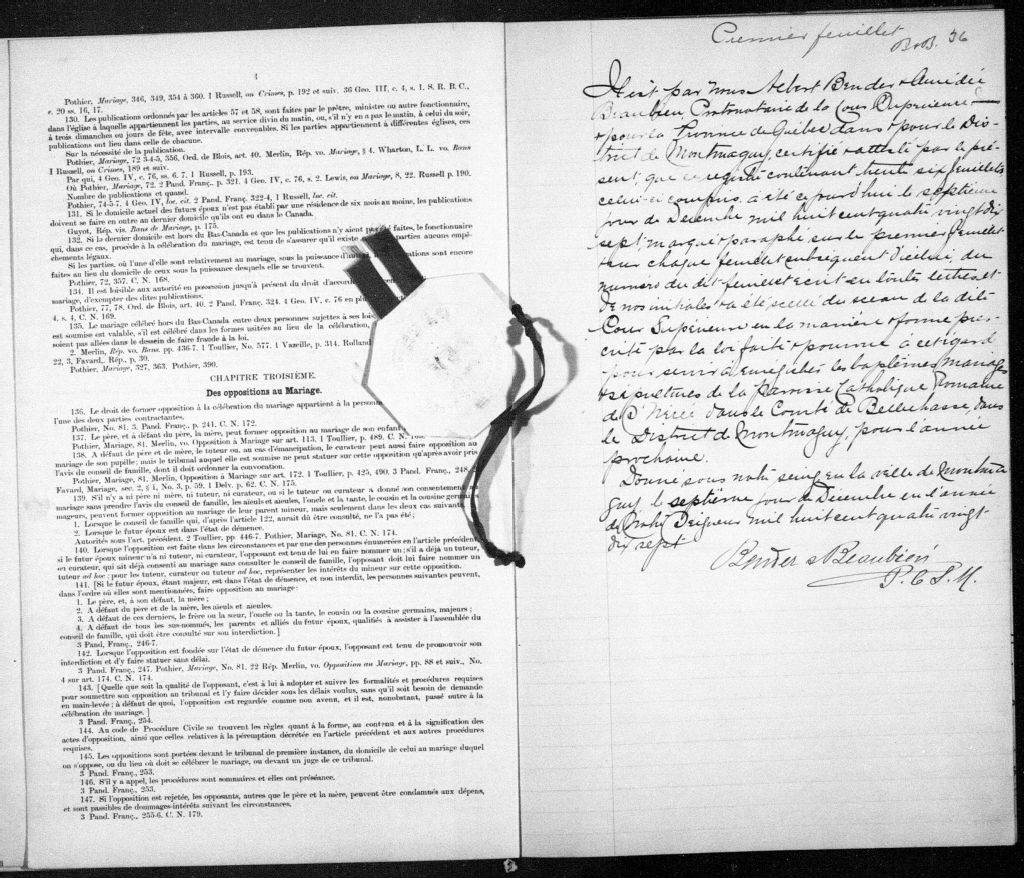 4
Pothier, Mariage, 346, 349, 354 à 360. 1 Russell, on Crimes, p. 192 et suiv. 36 Geo. III, c. 4, s. 1. S. R. B. C.,
c. 20 ss. 16, 17.
130. Les publications ordonnées par les articles 57 et 58, sont faites par le prêtre, ministre ou autre fonctionnaire,
dans l'église à laquelle appartiennent les parties, au service divin du matin, ou, s'il n'y en a pas le matin, à celui du soir,
à trois dimanches ou jours de fête, avec intervalle convenables. Si les parties appartiennent à différentes églises, ces
publications ont lieu dans celle de chacune.
Sur la nécessité de la publication.
Pothier, Mariage, 72 3-4-5, 356, Ord. de Blois, art. 40. Merlin, Rép. vo. Mariage, § 4. Wharton, L. L. vo. Bans
1 Russell, on Crimes, 189 et suiv.
Par qui, 4 Geo. IV, c. 76, ss. 6. 7. 1 Russell, p. 193.
Où Pothier, Mariage, 72. 2 Pand. Franç. p. 321. 4 Geo. IV, c. 76, s. 2. Lewis, on Mariage, 8, 22. Russell p. 190.
Nombre de publications et quand.
Pothier, 74-5-7. 4 Geo. IV, loc. cit. 2 Pand. Franç. 322-4, 1 Russell, loc. cit.
131. Si le domicile actuel des futurs époux n'est pas établi par une résidence de six mois au moins, les publications
doivent se faire en outre au dernier domicile qu'ils ont eu dans le Canada.
Guyot, Rép. vis. Bans de Mariage, p. 175.
132. Si le dernier domicile est hors du Bas-Canada et que les publications n'y aient pas été faites, le fonctionnaire
qui, dans ce cas, procède à la célébration du mariage, est tenu de s'assurer qu'il existe parties aucuns empê-
chements légaux.
Si les parties, où l'une d'elle sont relativement au mariage, sous la puissance d'autrui, ations sont encore
faites au lieu du domicile de ceux sous la puissance desquels elle se trouvent.
Pothier, 72, 357. C. N. 168.
134. Il est loisible aux autorité en possession jusqu'à présent du droit d'accorder
mariage, d'exempter des dites publications.
Pothier, 77, 78. Ord. de Blois, art. 40. 2 Pand. Franç. 324. 4 Geo. IV, c. 76 en pl
4, s. 4, C. N. 169.
135. Le mariage célébré hors du Bas-Canada entre deux personnes sujettes à ses lois
est soumise est valable, s'il est célébré dans les formes usitées au lieu de la célébration,
soient pas allées dans le dessein de faire fraude à la loi.
2. Merlin, Rép. vo. Bans. pp. 436-7. 1 Toullier, No. 577. 1 Vazeille, p. 314. Rolland
22, 3, Favard, Rép., p. 30.
Pothier, Mariage, 327, 363. Pothier, 390.
CHAPITRE TROISIÈME.
Des oppositions au Mariage.
136. Le droit de former opposition à la célébration du mariage appartient à la personn
l'une des deux parties contractantes.
Pothier, No. 81. 3. Pand. Franç. p. 241. C. N. 172.
137. Le père, et à défaut du père, la mère, peut former opposition au mariage de son enfant
Pothier, Mariage, 81. Merlin, vo. Opposition à Mariage sur art. 113. 1 Toullier, p. 489. C. N.
138. A défaut de père et de mère, le tuteur ou, au cas d'émancipation, le curateur peut aussi faire opposition au
mariage de son pupille; mais le tribunal auquel elle est soumise ne peut statuer sur cette opposition qu'après avoir pris
l'avis du conseil de famille, dont il doit ordonner la convocation.
Pothier, Mariage, 81. Merlin, Opposition à Mariage sur art. 172. 1 Toullier, p. 425, 490. 3 Pand. Franç., 248
Favard, Mariage, sec. 2, § 1, No. 3, p. 59. 1 Delv. p. 62. C. N. 175.
139. S'il n'y a ni père ni mère, ni tuteur, ni curateur, ou si le tuteur ou curateur a donné son consentement
mariage sans prendre l'avis du conseil de famille, les aïeuls et aïeules, l'oncle et la tante, le cousin et la cousine germa
majeurs, peuvent former opposition au mariage de leur parent mineur, mais seulement dans les deux cas suivants
1. Lorsque le conseil de famille qui, d'après l'article 122, aurait dû être consulté, ne l'a pas été;
2. Lorsque le futur époux est dans l'état de démence.
Autorités sous l'art. précédent. 2 Toullier, pp. 446-7. Pothier, Mariage, No. 81. C. N. 174.
140. Lorsque l'opposition est faite dans les circonstances et par une des personnes énumérées en l'article précédent
si le futur époux mineur n'a ni tuteur, ni curateur, l'opposant est tenu de lui en faire nommer un; s'il a déjà un tuteur,
ou curateur, qui ait déjà consenti au mariage sans consulter le conseil de famille, l'opposant doit lui faire nommer un
tuteur ad hoc; pour les tuteur, curateur ou tuteur ad hoc, représenter les intérêts du mineur sur cette opposition.
141. [Si le futur époux, étant majeur, est dans l'état de démence, et non interdit, les personnes suivantes peuvent,
dans l'ordre où elles sont mentionnées, faire opposition au mariage:
1. Le père, et, à son défaut, la mère;
2. A défaut du père et de la mère, les aïeuls et aïeules.
3. A défaut de ces derniers, le frère ou la sœur, l'oncle ou la tante, le cousin ou la cousine germains, majeurs;
4. A défaut de tous les sus-nommés, les parents et alliés du futur époux, qualifiés à assister à l'assemblée du
conseil de famille, qui doit être consulté sur son interdiction.]
3 Pand. Franç., 246-7.
142. Lorsque l'opposition est fondée sur l'état de démence du futur époux, l'opposant est tenu de promouvoir son
interdiction et d'y faire statuer sans délai.
3 Pand. Franç., 247. Pothier, Mariage, No. 81. 22 Rép. Merlin, vo. Opposition au Mariage, pp. 88 et suiv., No.
4 sur art. 174. C. N. 174.
143. [Quelle que soit la qualité de l'opposant, c'est à lui à adopter et suivre les formalités et procédures requises
pour soumettre son opposition au tribunal et l'y faire décider sous les délais voulus, sans qu'il soit besoin de demande
en main-levée; à défaut de quoi, l'opposition est regardée comme non avenu, et il est, nonobstant, passé outre à la
célébration du mariage.]
3 Pand. Franç., 254.
144. Au code de Procédure Civile se trouvent les règles quant à la forme, au contenu et à la signification des
actes d'opposition, ainsi que celles relatives à la péremption décrétée en l'article précédent et aux autres procédures
requises.
145. Les oppositions sont portées devant le tribunal de première instance, du domicile de celui au mariage duquel
on s'oppose, ou du lieu où doit se célébrer le mariage, ou devant un juge de ce tribunal.
3 Pand. Franç., 253.
146. S'il y a appel, les procédures sont sommaires et elles ont préséance.
3 Pand. Franç., 253.
147. Si l'opposition est rejetée, les opposants, autres que le père et la mère, peuvent être condamnés aux dépens,
et sont passibles de dommages-intérêts suivant les circonstances.
3 Pand. Franç., 255-6. C. N. 179.
Premier feuillet
B&B. 36
Il est par nous Albert Bender & Amédée
Beaubien Protonotaire de la Cour Supérieure
& pour la Province de Québec dans & pour le Dis-
trict de Montmagny, certifié & attesté par le pré-
sent, que ce registre contenant trente six feuillets
celui-ci compris, a été ce jourd'hui le septième
jour de Décembre mil huit cent quatre vingt dix
sept, marqué & paraphé sur le premier feuillet
& sur chaque feuillet subsequent d'icelui, du
numéro du dit feuillet écrit en toutes lettres et
de nos initiales & a été scellé du sceau de la dite
Cour Supérieure en la manière & forme pres-
crite par la loi faite & pourvue à cet égard
pour servir à enregistrer les baptêmes, mariages
& sépultures de la paroisse Catholique Romaine
de St Nérée dans le Comté de Bellechasse dans
le District de Montmagny, pour l'année
prochaine.
Donné sous notre seing en la ville de Montma
gny, le septième jour de Décembre en l'année
de Notre Seigneur mil huit cent quatre vingt
dix sept
Bender & Beaubien
P. C. S. M.